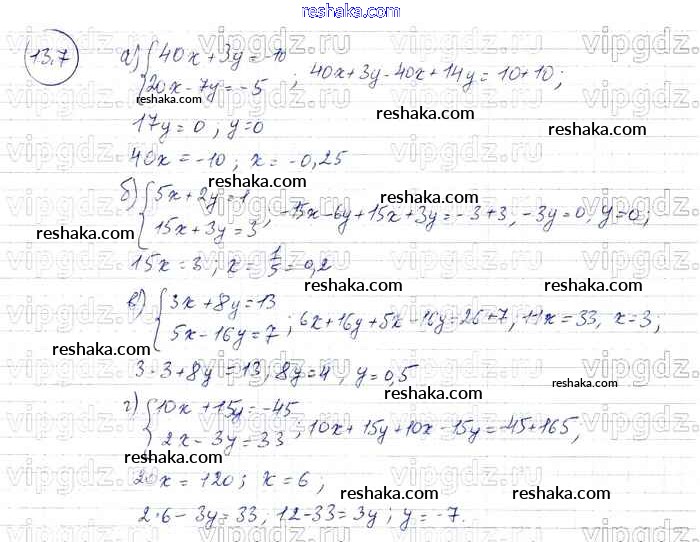 reshaka.com
13.7 а) { 40x + 3y = -10
20x - 7y = -5 ; 40x + 3y - 40x + 14y = 10 + 10 ;
reshaka.com
17y = 0 ; y = 0
reshaka.com
40x = -10 ; x = -0,25
reshaka.com
б) { 5x + 2y = 1
15x + 3y = 3 ; -15x - 6y + 15x + 3y = -3 + 3, -3y = 0, y = 0 ;
reshaka.com
reshaka.com
15x = 3 ; x = 1/5 = 0,2
reshaka.com
в) { 3x + 8y = 13
5x - 16y = 7 ; 6x + 16y + 5x - 16y = 26 + 7, 11x = 33, x = 3 ;
reshaka.com
reshaka.com
3·3 + 8y = 13, 8y = 4, y = 0,5
reshaka.com
г) { 10x + 15y = -45
reshaka.com
2x - 3y = 33 ; 10x + 15y + 10x - 15y = -45 + 165,
reshaka.com
20x = 120 ; x = 6 ;
reshaka.com
reshaka.com
2·6 - 3y = 33, 12 - 33 = 3y ; y = -7.
reshaka.com
vipgdz.ru